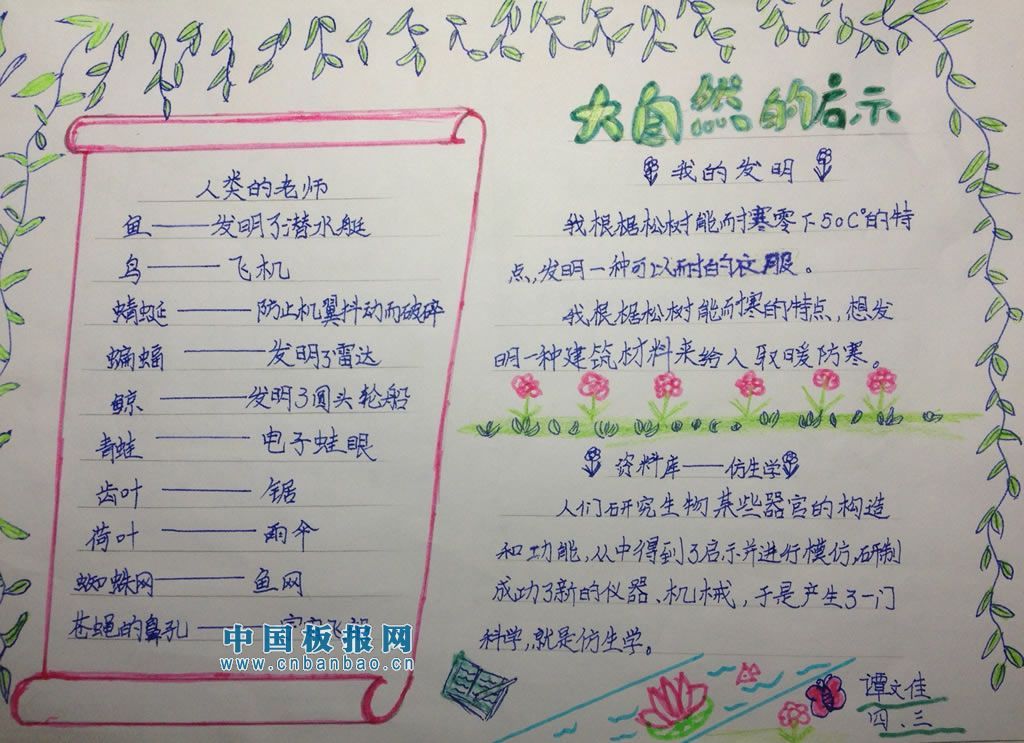 大自然的启示
人类的老师
鱼——发明了潜水艇
鸟——飞机
蜻蜓——防止机翼抖动而破碎
蝙蝠——发明了雷达
鲸——发明了圆头轮船
青蛙——电子蛙眼
齿叶——锯
荷叶——雨伞
蜘蛛网——鱼网
苍蝇的鼻孔——
中国板报网
www.cnbanbao.cn
我的发明
我根据松树能耐寒零下50C°的特
点,发明一种可以耐拍的衣服。
我根据松树能耐寒的特点,想发
明一种建筑材料来给人取暖防寒。
资料库——仿生学
人们研究生物某些器官的构造
和功能,从中得到了启示并进行模仿,研制
成功了新的仪器、机械,于是产生了一门
科学,就是仿生学。
谭文佳
四.三